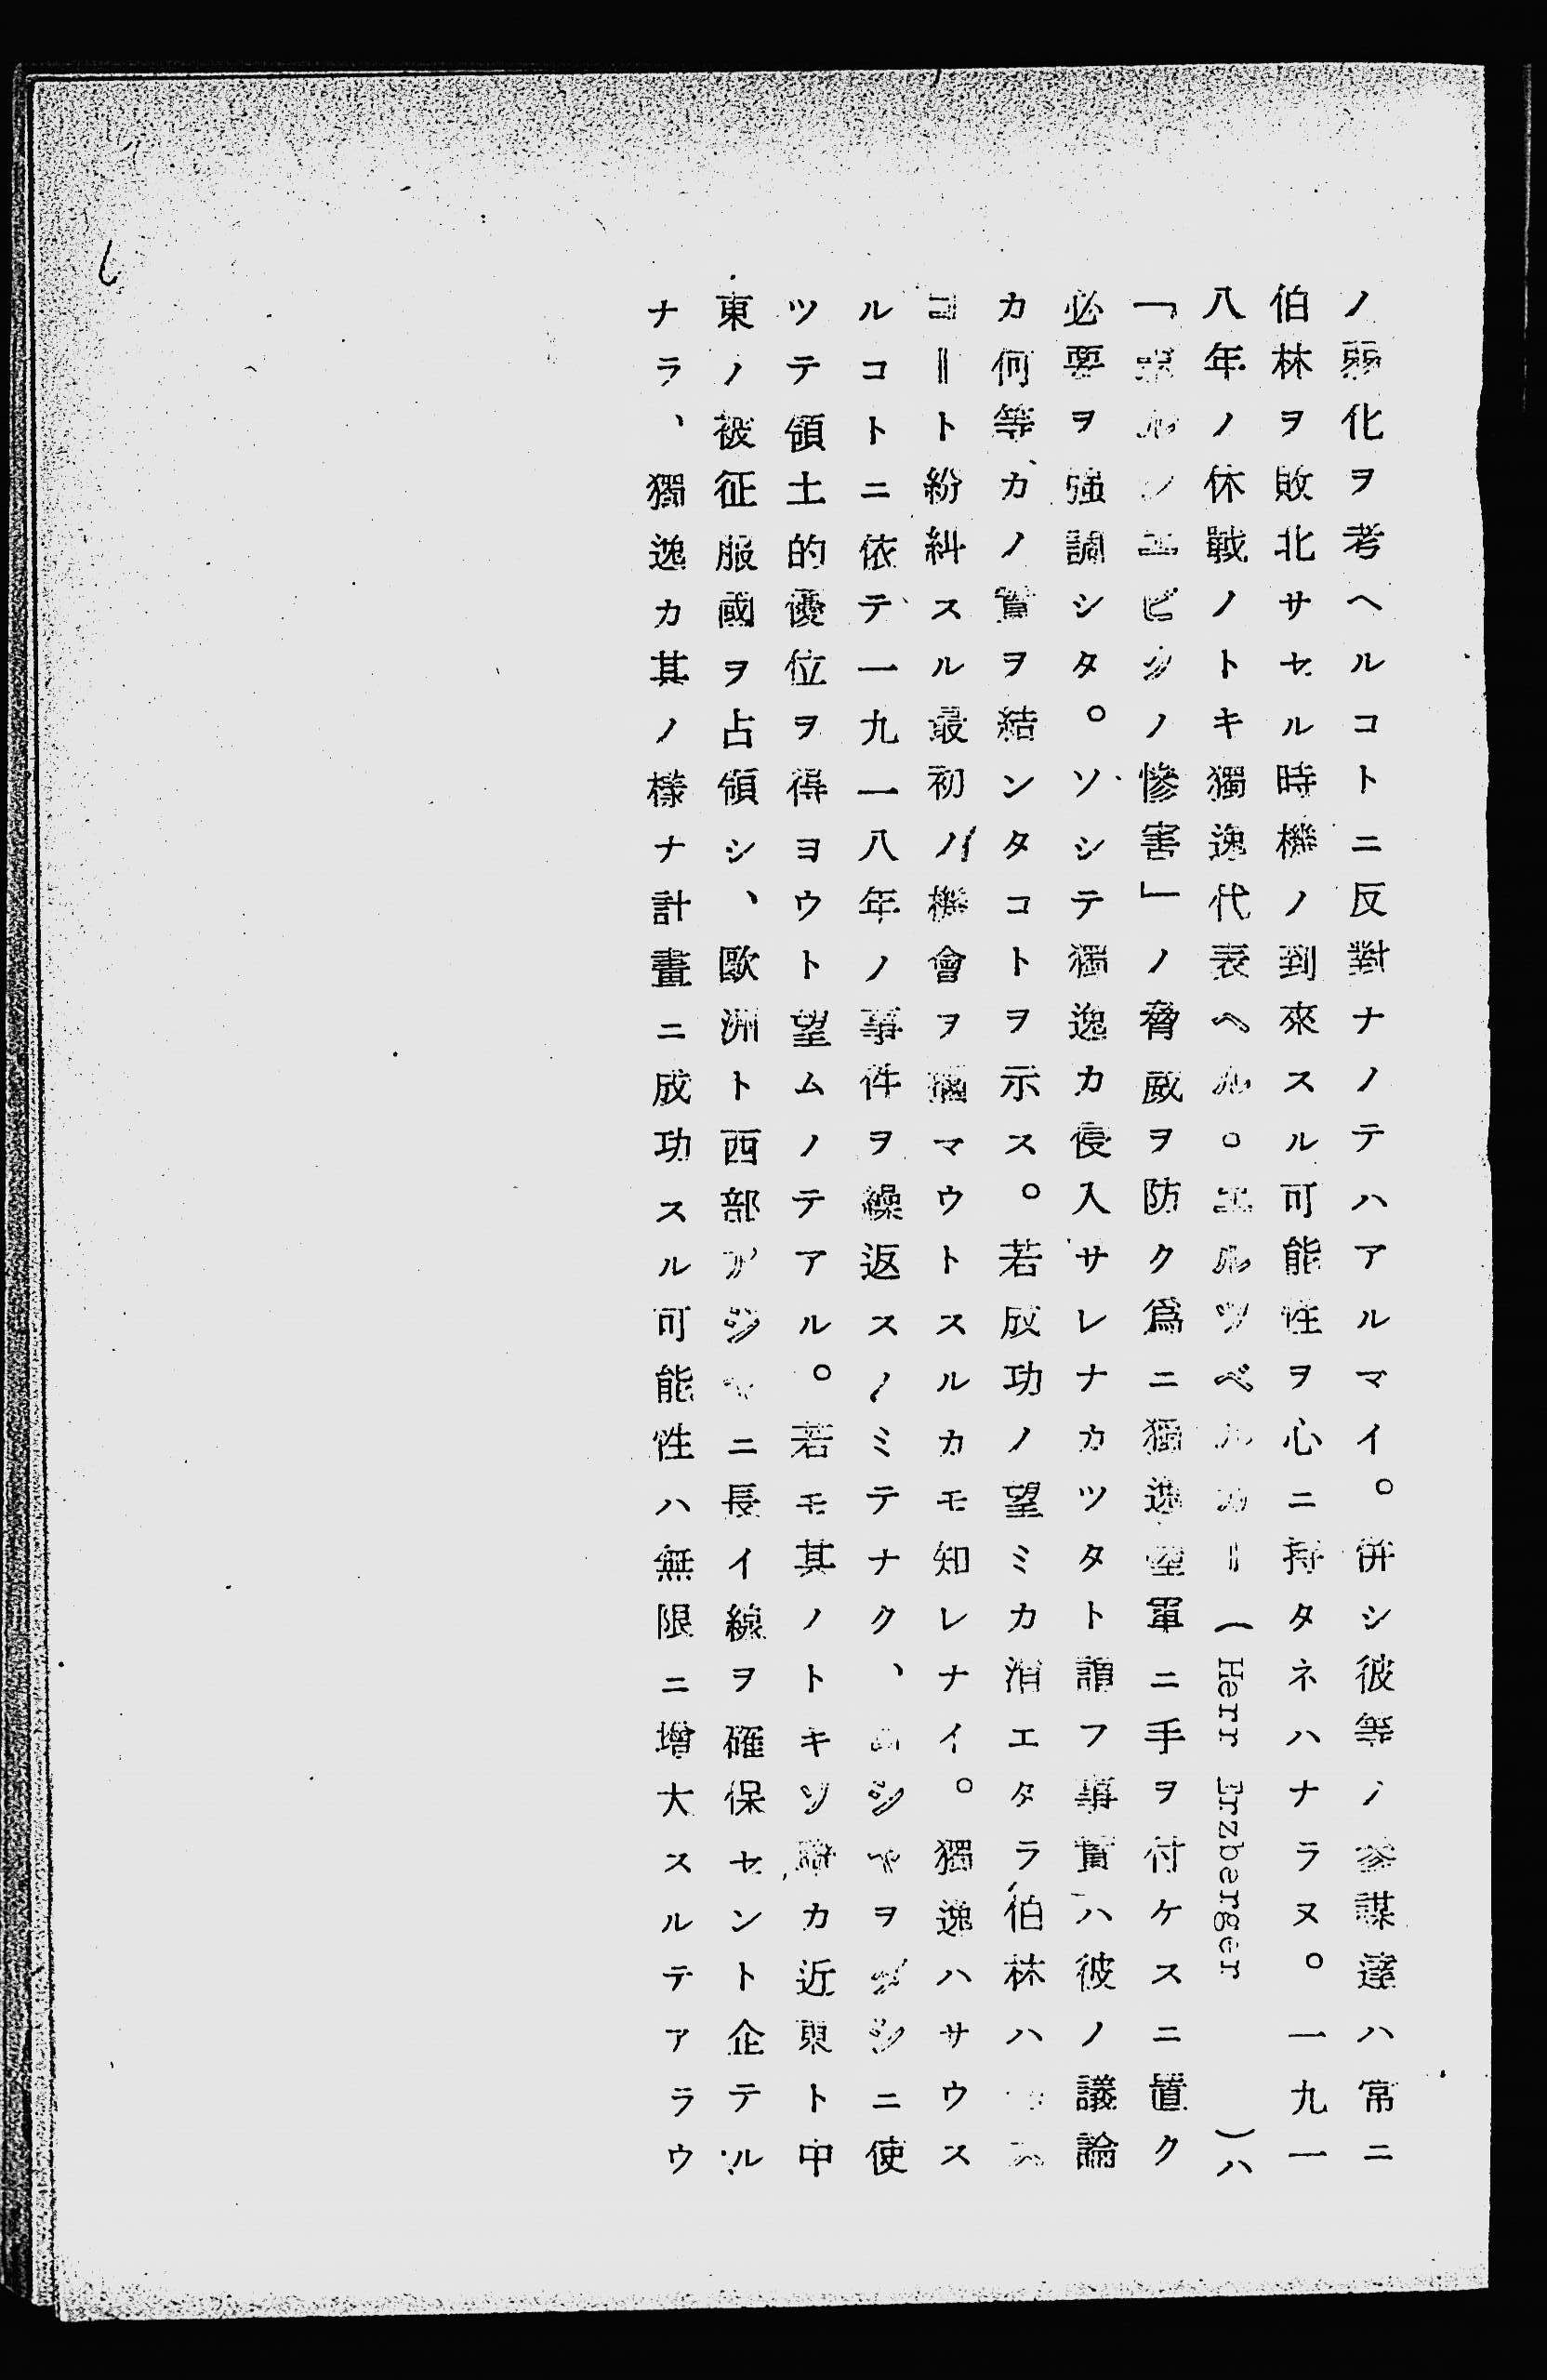 ノ弱化ヲ考ヘルコトニ反對ナノテハアルマイ。併シ彼等ノ參謀達ハ常ニ
伯林ヲ敗北サセル時機ノ到來スル可能性ヲ心ニ持タネハナラヌ。一九一
八年ノ休戰ノトキ獨逸代表ヘル。エルツベルガー（Herr Erzberger）ハ
「ボルシエビクノ慘害」ノ脅威ヲ防ク爲ニ獨逸陸軍ニ手ヲ付ケスニ置ク
必要ヲ強調シタ。ソシテ獨逸カ侵入サレナカツタト謂フ事實ハ彼ノ議論
カ何等カノ實ヲ結ンタコトヲ示ス。若成功ノ望ミカ消エタラ伯林ハモス
コート紛糾スル最初ノ機會ヲ摑マウトスルカモ知レナイ。獨逸ハサウス
ルコトニ依テ一九一八年ノ事件ヲ繰返スノミテナク、ロシヤヲダシニ使
ツテ領土的優位ヲ得ヨウト望ムノテアル。若モ其ノトキソ聯カ近東ト中
東ノ被征服國ヲ占領シ、歐洲ト西部アジヤニ長イ線ヲ確保セント企テル
ナラ、獨逸カ其ノ樣ナ計畫ニ成功スル可能性ハ無限ニ增大スルテアラウ